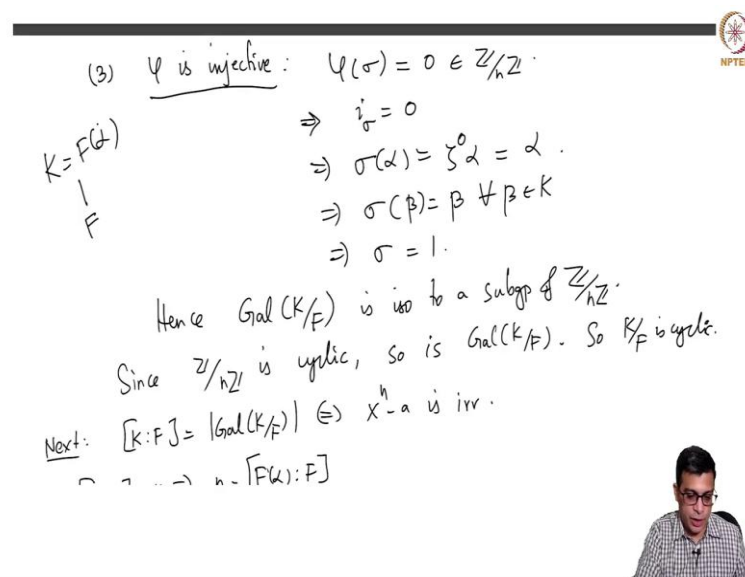 (3) φ is injective: φ(σ) = 0 ∈ ℤ/nℤ.
⇒ i_σ = 0
K = F(α)
|
F
⇒ σ(α) = ζ⁰α = α.
⇒ σ(β) = β ∀ β ∈ K
⇒ σ = 1.
Hence Gal(K/F) is iso to a subgp of ℤ/nℤ.
Since ℤ/nℤ is cyclic, so is Gal(K/F). So K/F is cyclic.
Next: [K:F] = |Gal(K/F)| ⇔ xⁿ-a is irr.
[F(α):F]
NPTEL